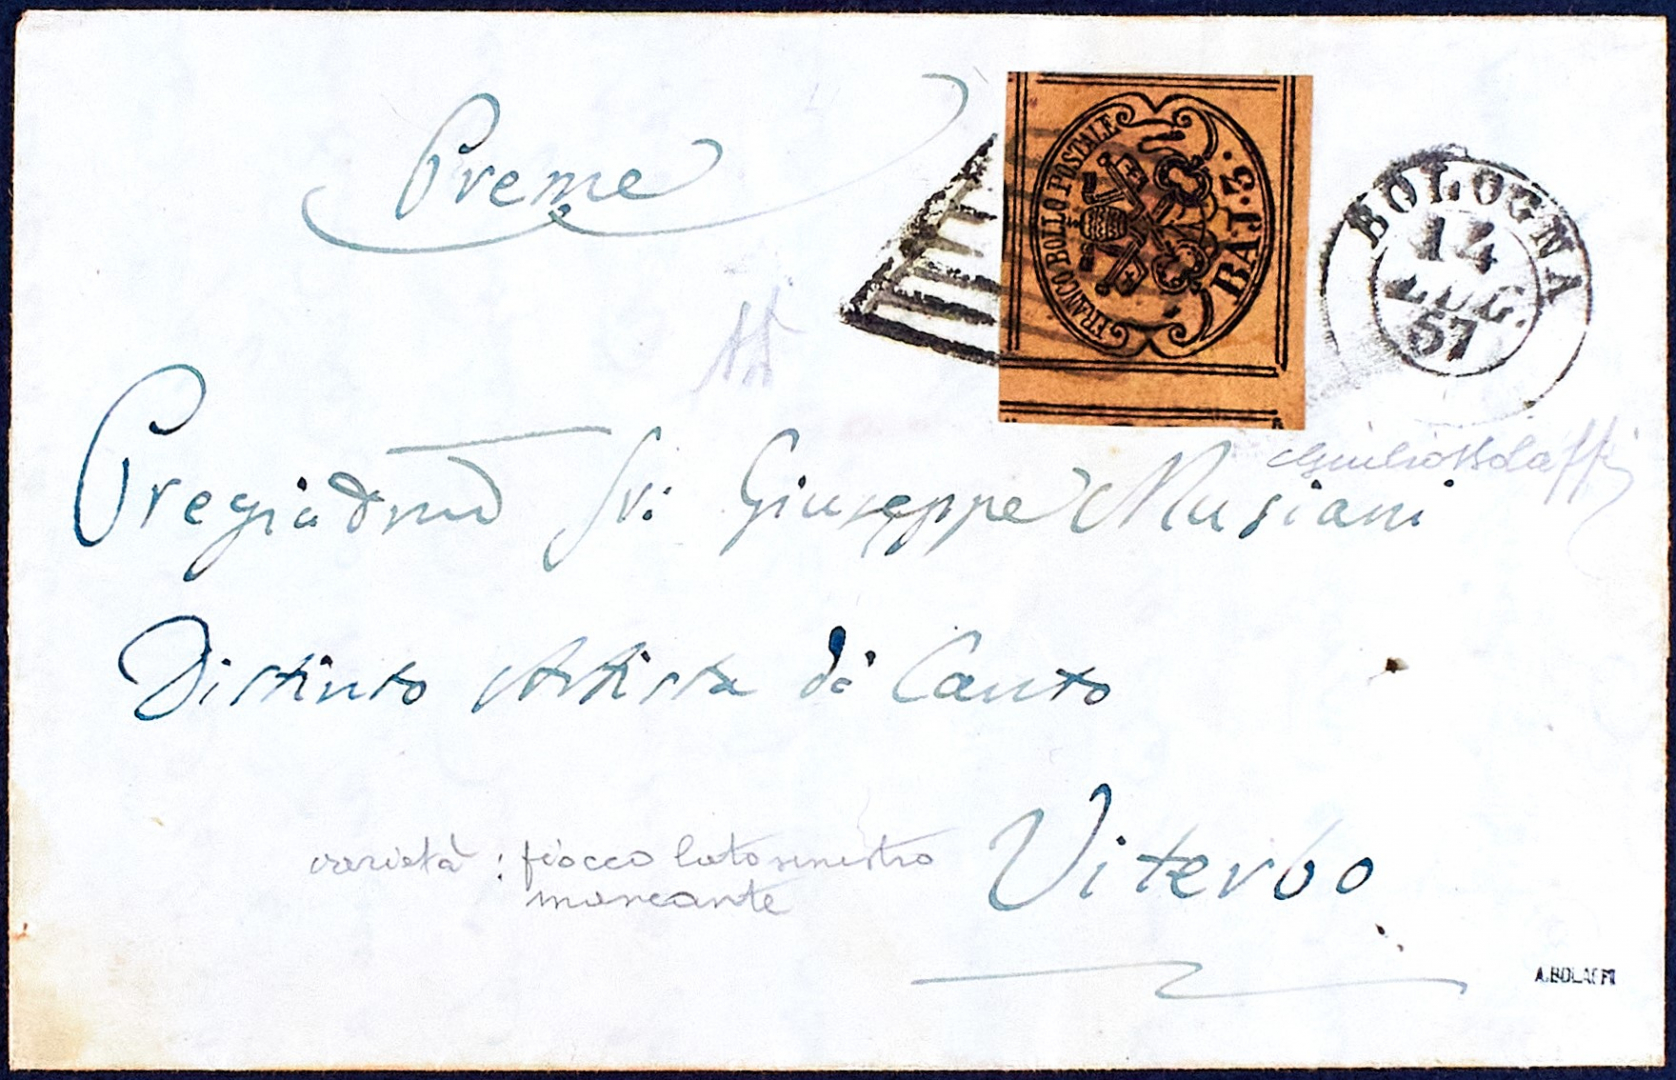 Preme
FRANCO BOLLO POSTALE
BAJ. 3
BOLOGNA
14
LUG.
57
Giulio Bolaffi
Sr: Giuseppe Musiani
Distinto Artista di Canto
Viterbo
varietà: fiocco lato sinistro
mancante
A. BOLAFFI